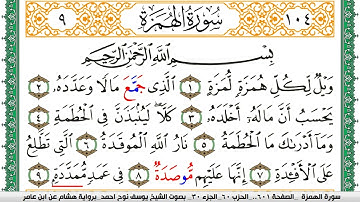 ١٠٤ سُورَةُ الْهُمَزَة ٩
بِسْمِ اللَّهِ الرَّحْمَٰنِ الرَّحِيمِ
وَيْلٌ لِّكُلِّ هُمَزَةٍ لُّمَزَةٍ ١ الَّذِي جَمَّعَ مَالًا وَعَدَّدَهُ ٢
يَحْسَبُ أَنَّ مَالَهُ أَخْلَدَهُ ٣ كَلَّا لَيُنۢبَذَنَّ فِي الْحُطَمَةِ ٤
وَمَا أَدْرَىٰكَ مَا الْحُطَمَةُ ٥ نَارُ اللَّهِ الْمُوقَدَةُ ٦ الَّتِي تَطَّلِعُ
عَلَى الْأَفْـِٔدَةِ ٧ إِنَّهَا عَلَيْهِم مُّوصَدَةٌ ٨ فِي عَمَدٍ مُّمَدَّدَةٍ ٩
سورة الهمزة _الصفحة ٦٠١.. الحزب ٦٠_ الجزء ٣٠_ بصوت الشيخ يوسف نوح احمد_برواية هشام عن ابن عامر